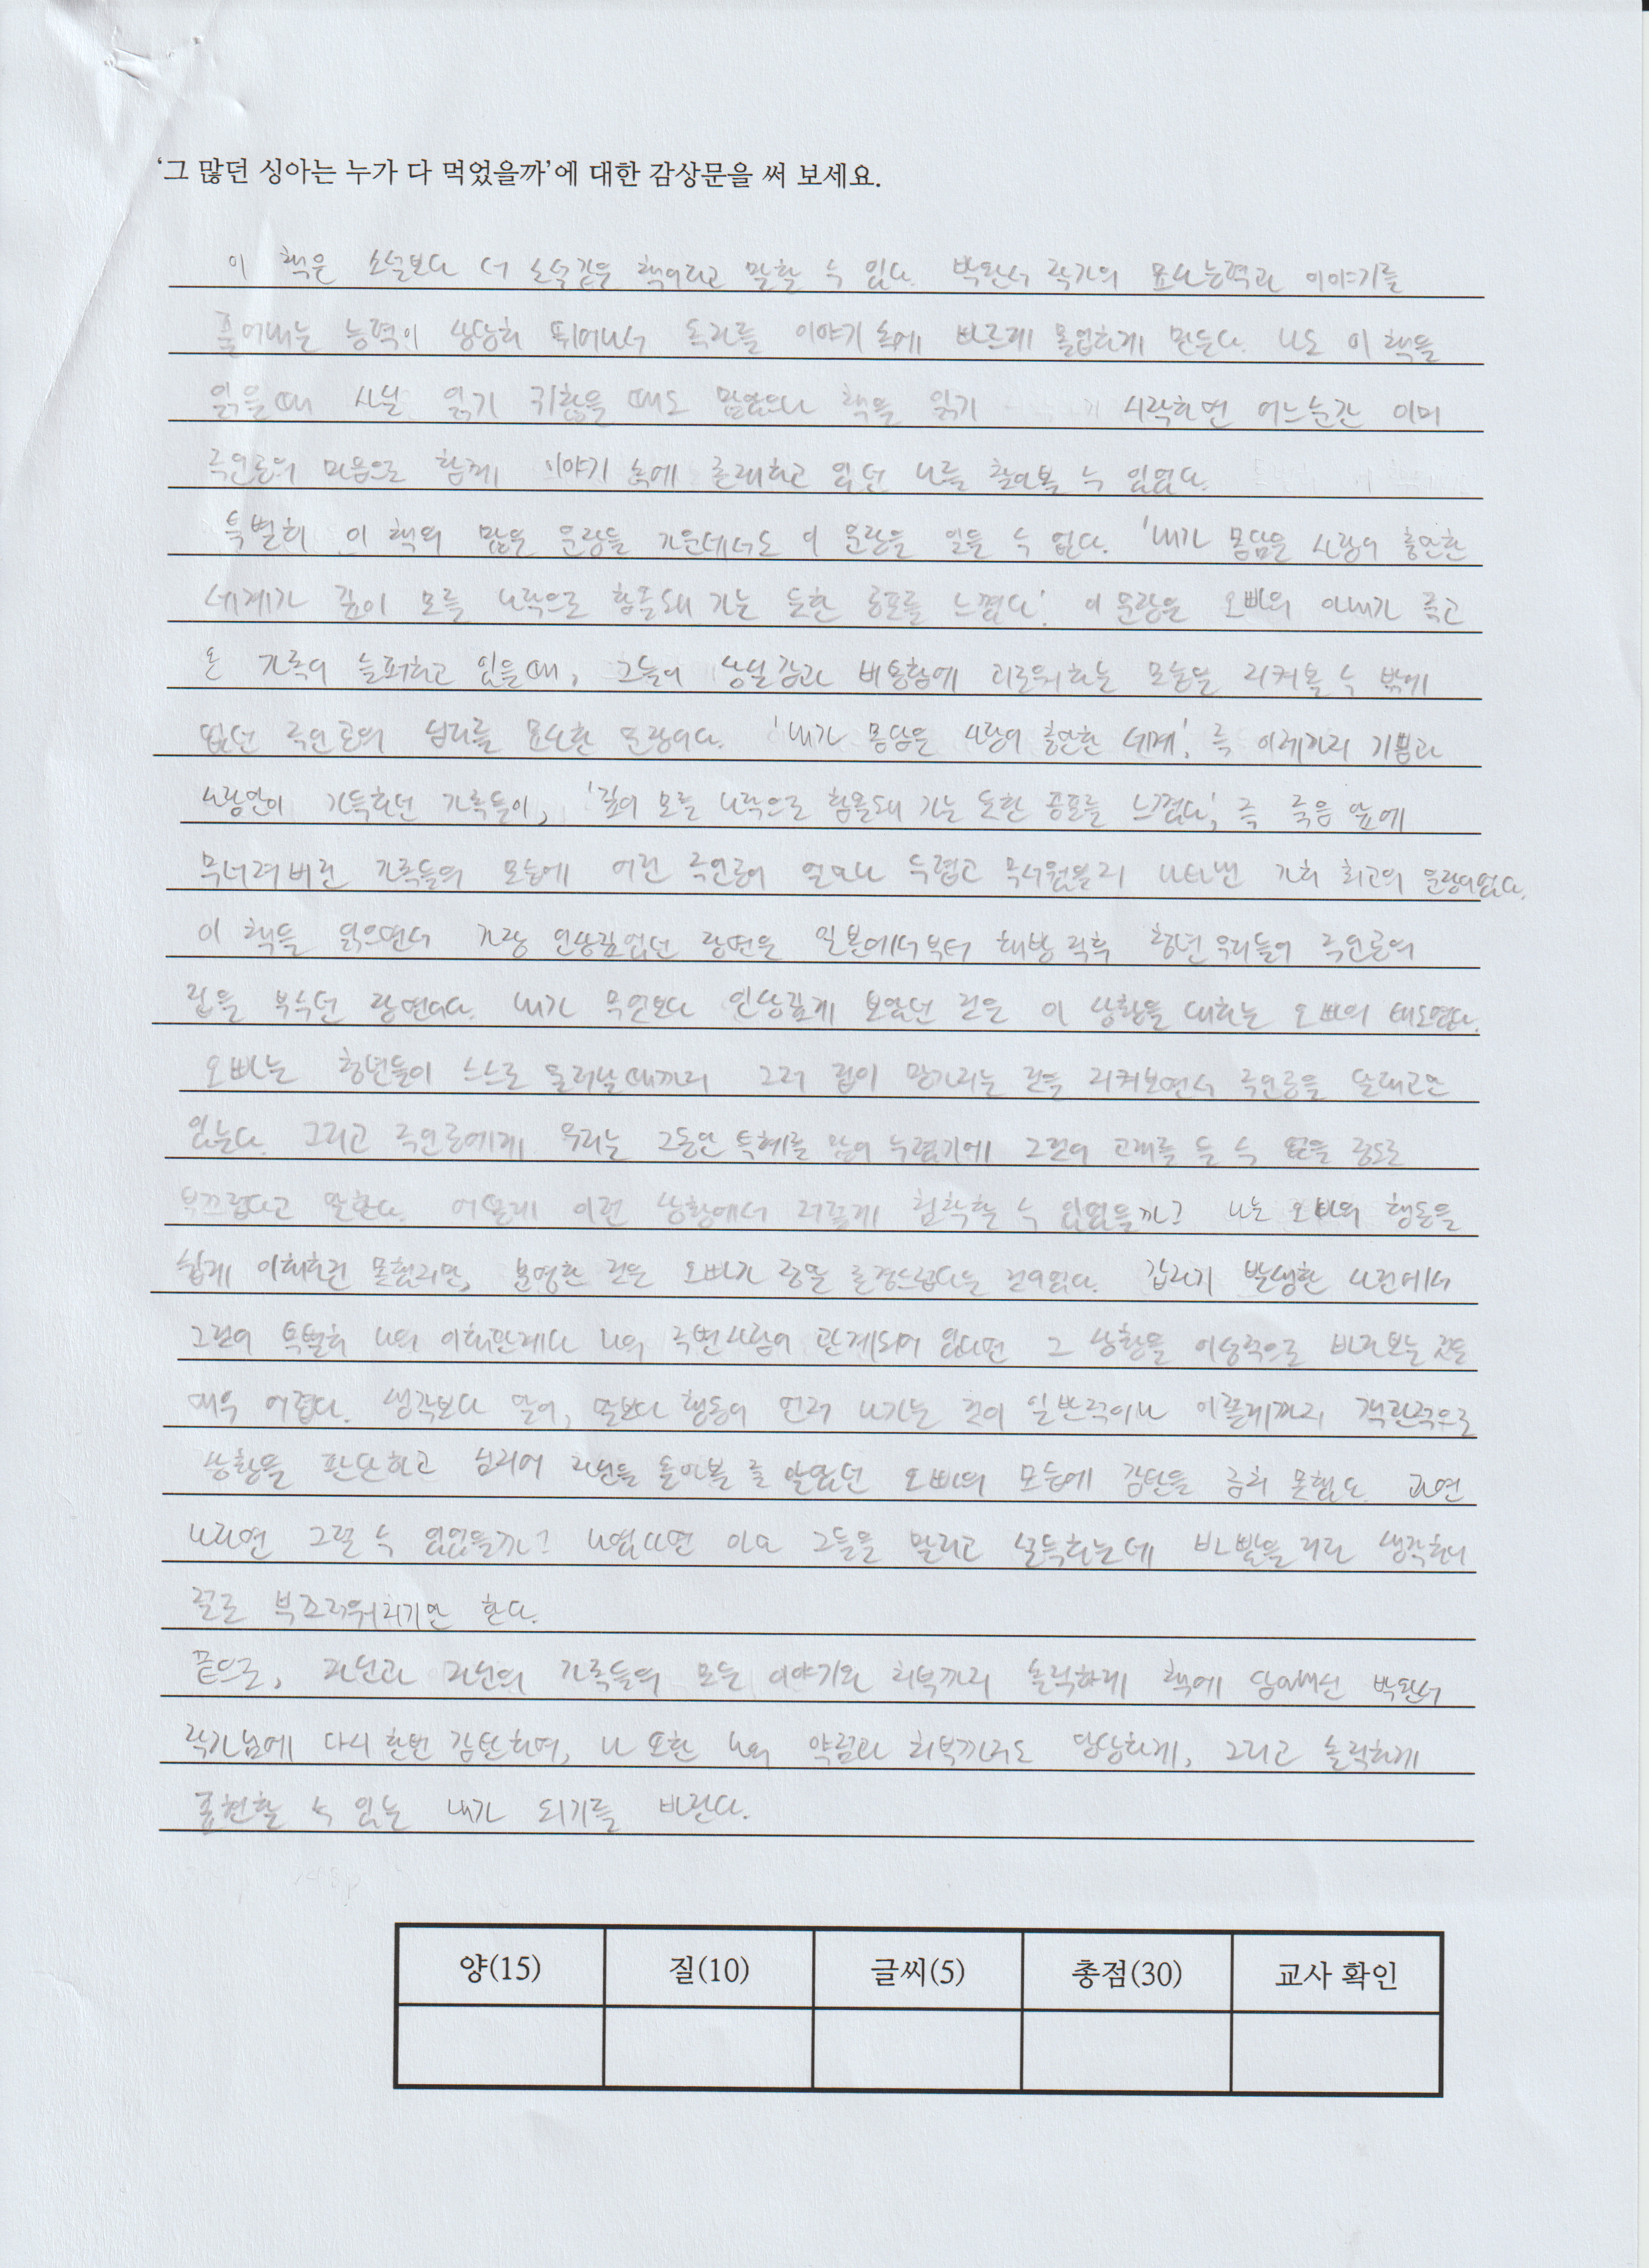 '그 많던 싱아는 누가 다 먹었을까'에 대한 감상문을 써 보세요.
이 책은 소설보다 더 소설같은 책이라고 말할 수 있다. 박완서 작가의 묘사능력과 이야기를
풀어내는 능력이 상당히 뛰어나서 독자를 이야기 속에 빠르게 몰입하게 만든다. 나도 이 책을
읽을때 사실 읽기 귀찮을 때도 많았으나 책을 읽기 시작하면 어느순간 이미
주인공의 마음으로 함께 이야기 속에 존재하고 있던 나를 찾아볼 수 있었다.
특별히 이 책의 많은 문장들 가운데서도 이 문장을 잊을 수 없다. '내가 몸담은 사랑이 충만한
세계가 깊이 모를 나락으로 함몰돼 가는 듯한 공포를 느꼈다.' 이 문장은 오빠의 아내가 죽고
온 가족이 슬퍼하고 있을때, 그들이 상실감과 비통함에 괴로워하는 모습을 지켜볼 수 밖에
없던 주인공의 심리를 묘사한 문장이다. '내가 몸담은 사랑이 충만한 세계', 즉 이제까지 기쁨과
사랑만이 가득하던 가족들이, '깊이 모를 나락으로 함몰돼 가는 듯한 공포를 느꼈다', 즉 죽음 앞에
무너져버린 가족들의 모습에 어린 주인공이 얼마나 두렵고 무서웠을지 나타낸 가히 최고의 문장이었다.
이 책을 읽으면서 가장 인상깊었던 장면은 일본에서부터 해방 직후 청년 무리들이 주인공의
집을 부수던 장면이다. 내가 무엇보다 인상깊게 보았던 것은 이 상황을 대하는 오빠의 태도였다.
오빠는 청년들이 스스로 물러날때까지 그저 집이 망가지는 것을 지켜보면서 주인공을 달래고만
있는다. 그리고 주인공에게 우리는 그동안 특혜를 많이 누렸기에 그것이 고개를 들 수 없을 정도로
부끄럽다고 말한다. 어떻게 이런 상황에서 저렇게 침착할 수 있었을까? 나는 오빠의 행동을
쉽게 이해하진 못했지만, 분명한 것은 오빠가 정말 존경스럽다는 것이었다. 갑자기 발생한 사건에서
그것이 특별히 나의 이해관계나 나의 주변사람이 관계되어 있다면 그 상황을 이성적으로 바라보는 것은
매우 어렵다. 생각보다 말이, 말보다 행동이 먼저 나가는 것이 일반적이나 이렇게까지 객관적으로
상황을 판단하고 심지어 자신을 돌아볼 줄 알았던 오빠의 모습에 감탄을 금치 못했다. 과연
나라면 그럴 수 있었을까? 나였다면 아마 그들을 말리고 설득하는데 바빴을 거라 생각하니
절로 부끄러워지기만 한다.
끝으로, 자신과 자신의 가족들의 모든 이야기와 치부까지 솔직하게 책에 담아내신 박완서
작가님에 다시 한번 감탄하며, 나 또한 나의 약점과 치부까지도 당당하게, 그리고 솔직하게
표현할 수 있는 내가 되기를 바란다.
양(15) 질(10) 글씨(5) 총점(30) 교사 확인